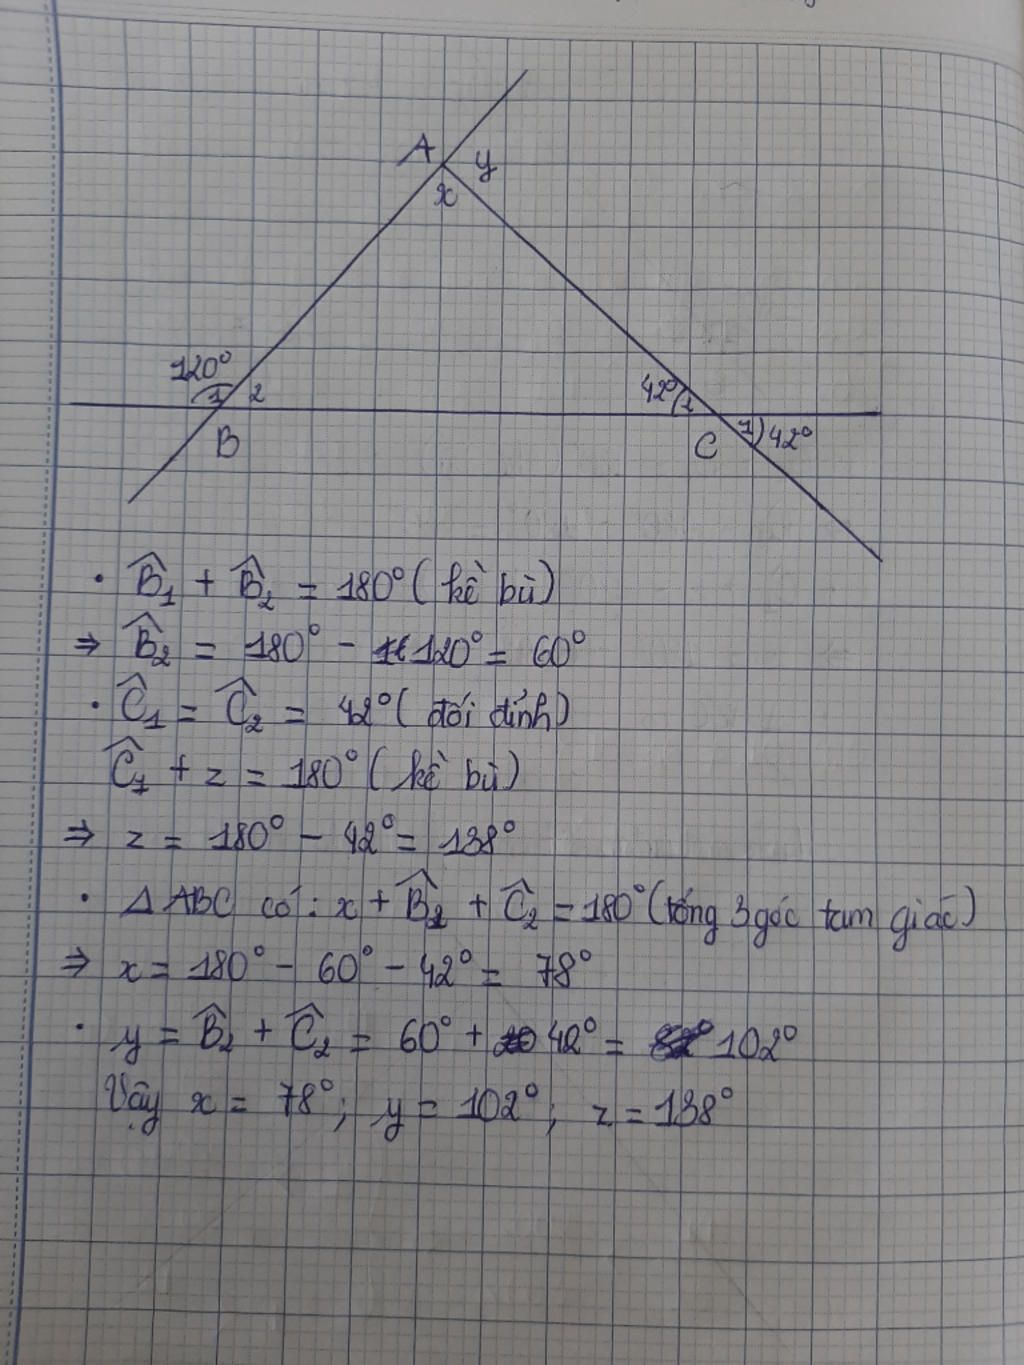 A
y
x
120°
1
2
42°
1
B
C
1
42°
• B̂₁ + B̂₂ = 180° ( kề bù)
⇒ B̂₂ = 180° - 120° = 60°
• Ĉ₁ = Ĉ₂ = 42° ( đối đỉnh)
Ĉ₁ + z = 180° ( kề bù)
⇒ z = 180° - 42° = 138°
• Δ ABC có: x + B̂₂ + Ĉ₂ = 180° (tổng 3 góc tam giác)
⇒ x = 180° - 60° - 42° = 78°
• y = B̂₂ + Ĉ₂ = 60° + 42° = 102°
Vậy x = 78°; y = 102°; z = 138°